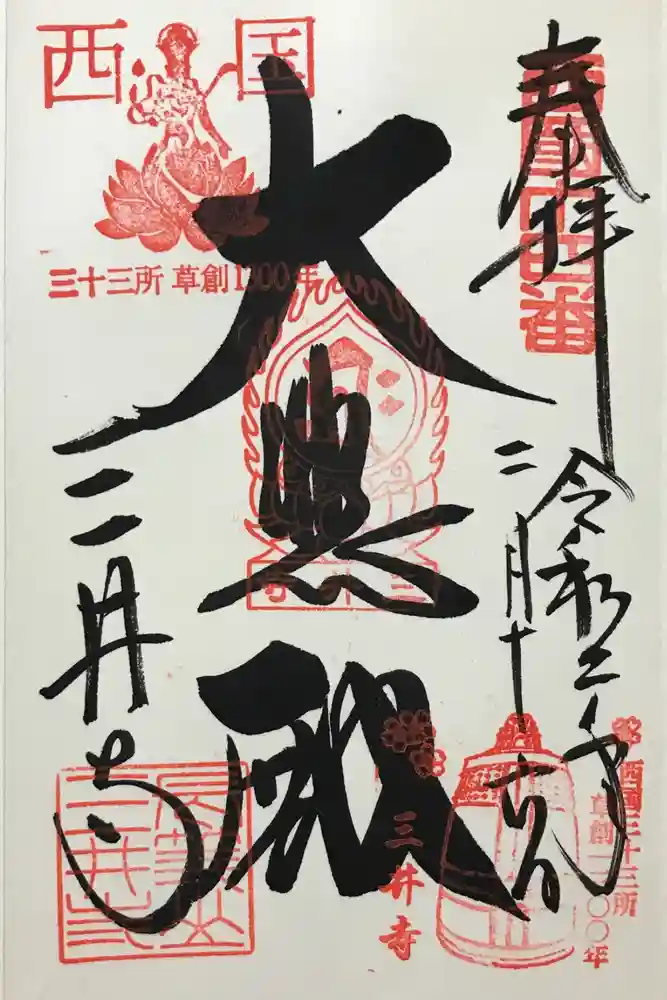 奉拝
西国十四番
令和二年
二月十
西国
三十三所 草創1300年
大悲殿
三井寺
三井寺
長等山
三井寺
三井寺
西国三十三所
草創一三〇〇年